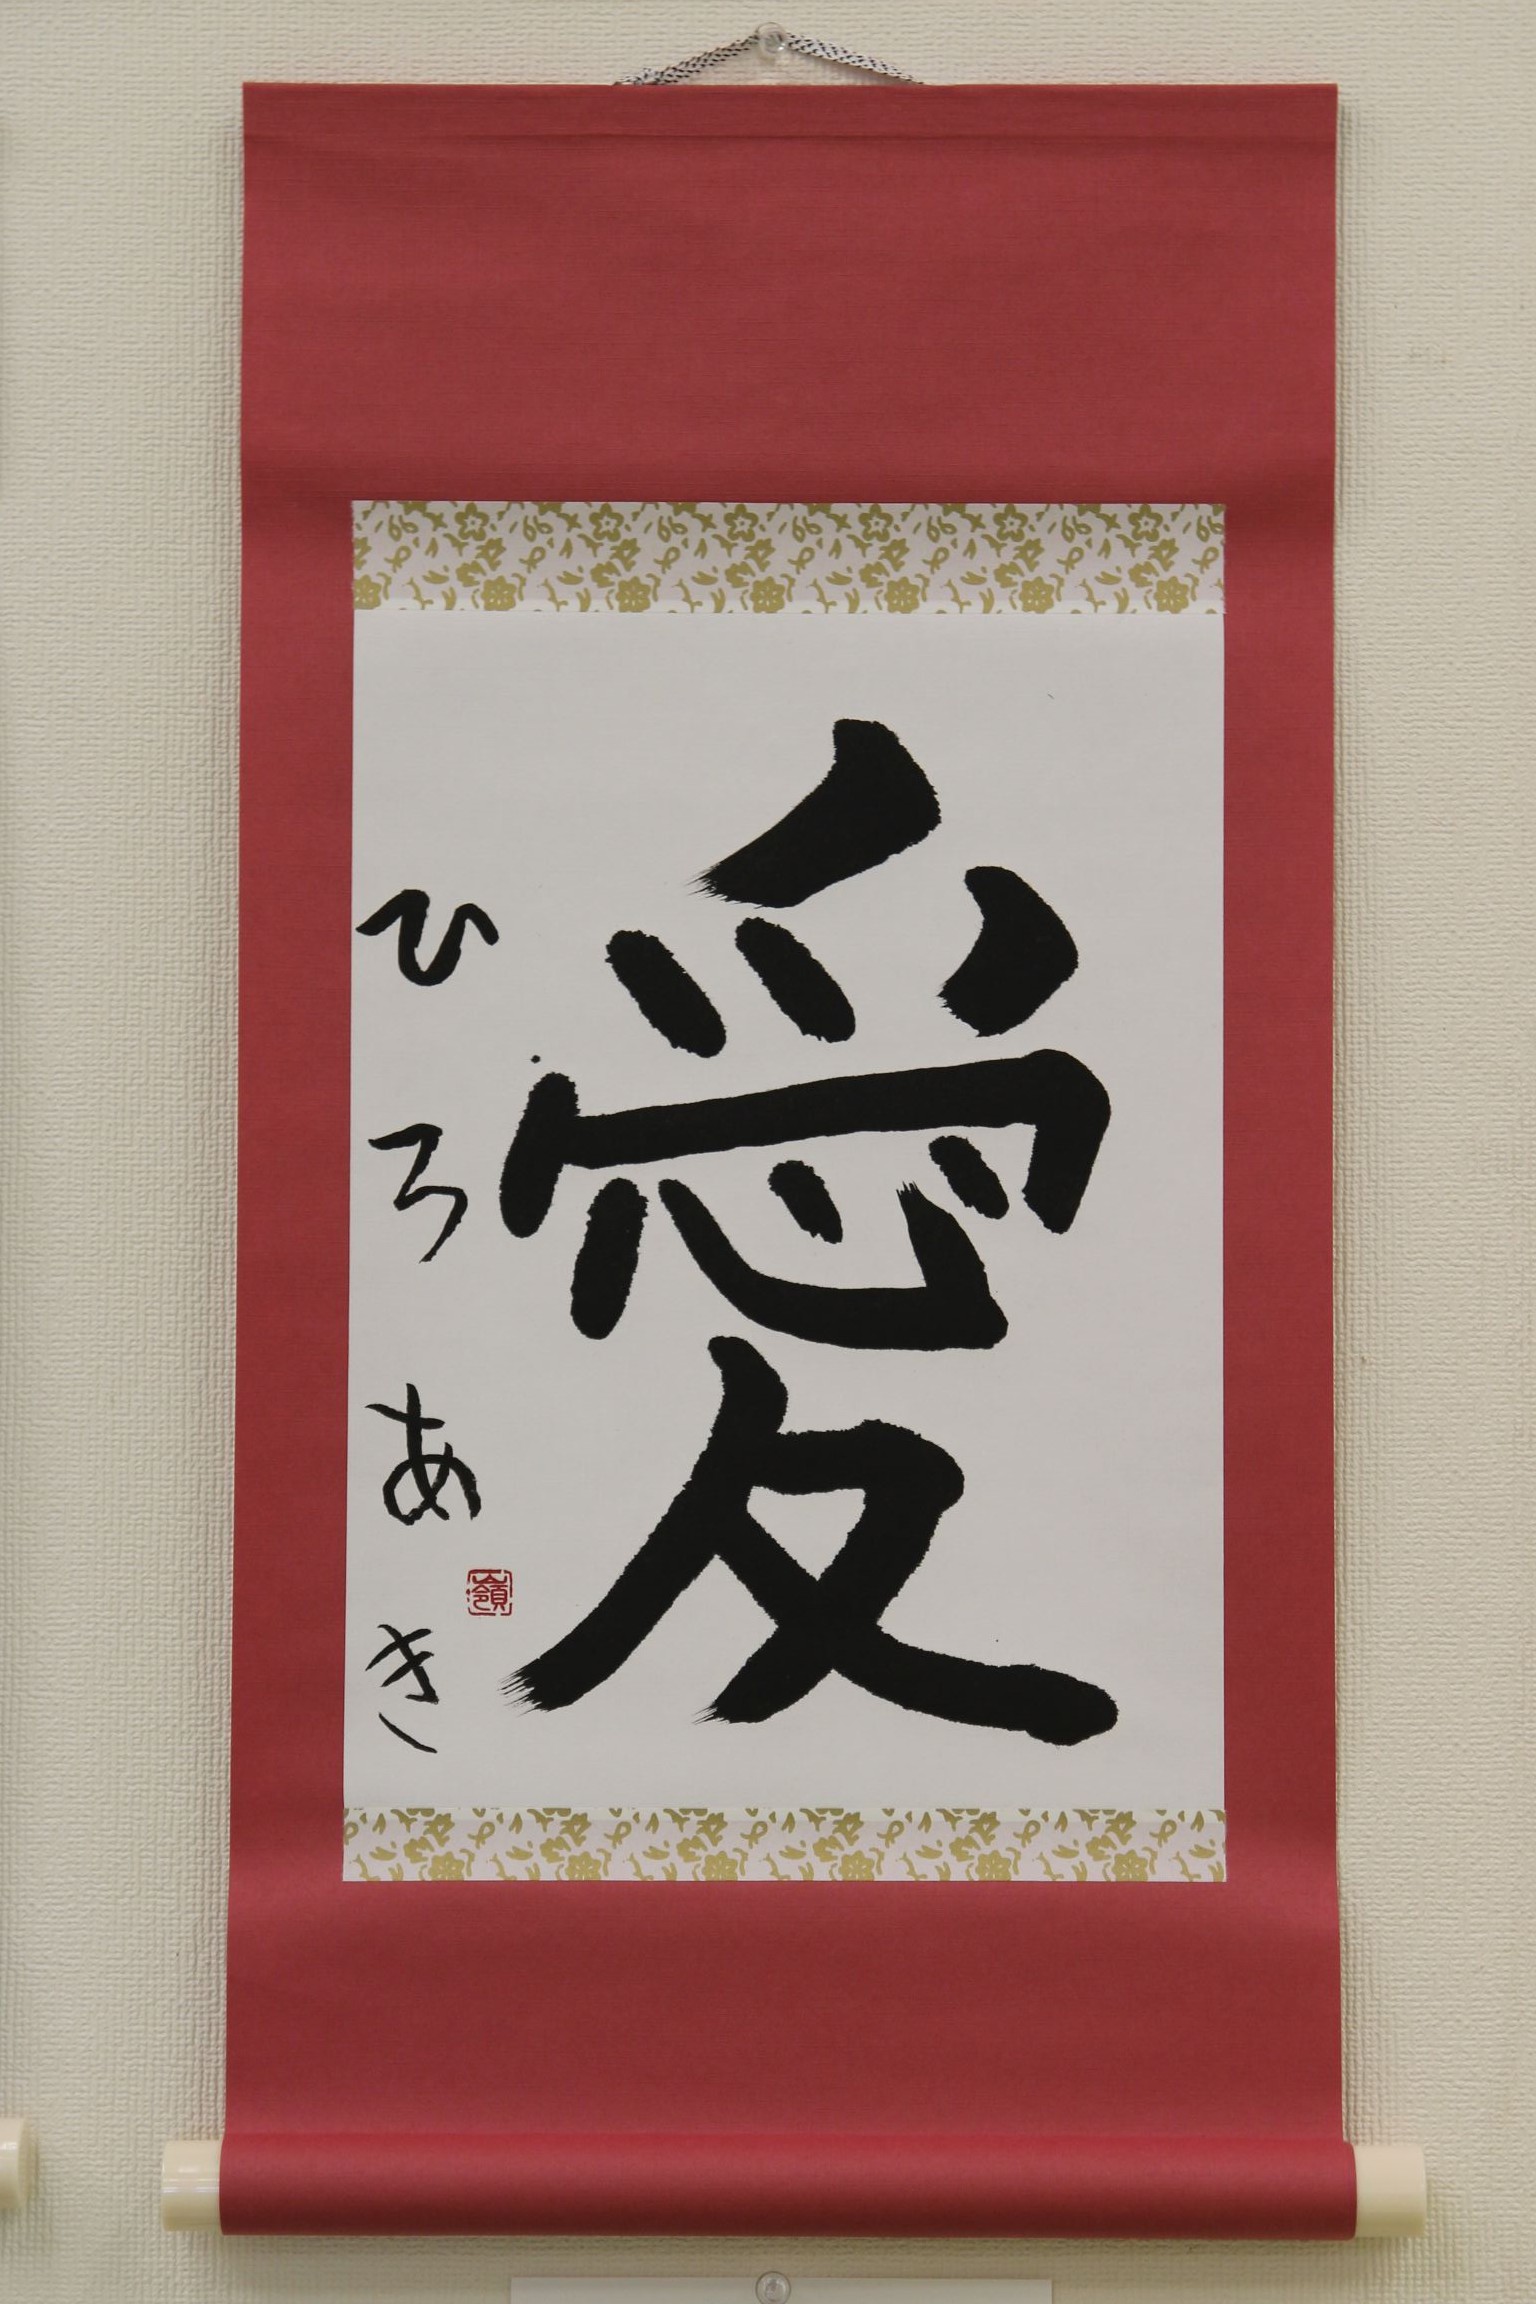 愛
ひろあき
嶺